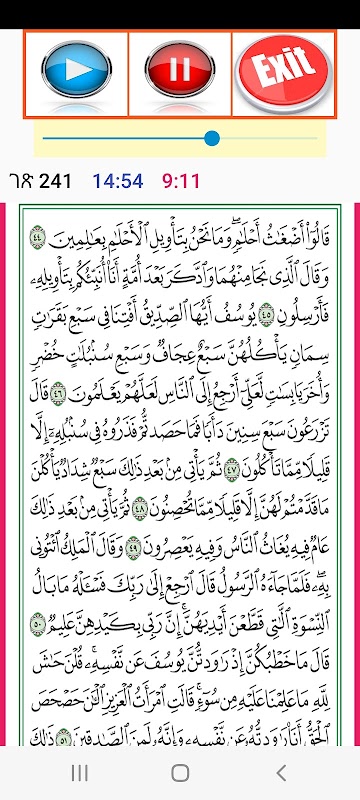 Exit
ገጽ 241 14:54 9:11
قَالُوٓا۟ أَضْغَٰثُ أَحْلَٰمٍ ۖ وَمَا نَحْنُ بِتَأْوِيلِ ٱلْأَحْلَٰمِ بِعَٰلِمِينَ ٤٤
وَقَالَ ٱلَّذِى نَجَا مِنْهُمَا وَٱدَّكَرَ بَعْدَ أُمَّةٍ أَنَا۠ أُنَبِّئُكُم بِتَأْوِيلِهِۦ
فَأَرْسِلُونِ ٤٥ يُوسُفُ أَيُّهَا ٱلصِّدِّيقُ أَفْتِنَا فِى سَبْعِ بَقَرَٰتٍ
سِمَانٍ يَأْكُلُهُنَّ سَبْعٌ عِجَافٌ وَسَبْعِ سُنۢبُلَٰتٍ خُضْرٍ
وَأُخَرَ يَابِسَٰتٍ لَّعَلِّىٓ أَرْجِعُ إِلَى ٱلنَّاسِ لَعَلَّهُمْ يَعْلَمُونَ ٤٦ قَالَ
تَزْرَعُونَ سَبْعَ سِنِينَ دَأَبًا فَمَا حَصَدتُّمْ فَذَرُوهُ فِى سُنۢبُلِهِۦٓ إِلَّا
قَلِيلًا مِّمَّا تَأْكُلُونَ ٤٧ ثُمَّ يَأْتِى مِنۢ بَعْدِ ذَٰلِكَ سَبْعٌ شِدَادٌ يَأْكُلْنَ
مَا قَدَّمْتُمْ لَهُنَّ إِلَّا قَلِيلًا مِّمَّا تُحْصِنُونَ ٤٨ ثُمَّ يَأْتِى مِنۢ بَعْدِ ذَٰلِكَ
عَامٌ فِيهِ يُغَاثُ ٱلنَّاسُ وَفِيهِ يَعْصِرُونَ ٤٩ وَقَالَ ٱلْمَلِكُ ٱئْتُونِى
بِهِۦ ۖ فَلَمَّا جَآءَهُ ٱلرَّسُولُ قَالَ ٱرْجِعْ إِلَىٰ رَبِّكَ فَسْـَٔلْهُ مَا بَالُ
ٱلنِّسْوَةِ ٱلَّٰتِى قَطَّعْنَ أَيْدِيَهُنَّ ۚ إِنَّ رَبِّى بِكَيْدِهِنَّ عَلِيمٌ ٥٠
قَالَ مَا خَطْبُكُنَّ إِذْ رَٰوَدتُّنَّ يُوسُفَ عَن نَّفْسِهِۦ ۚ قُلْنَ حَٰشَ
لِلَّهِ مَا عَلِمْنَا عَلَيْهِ مِن سُوٓءٍ ۚ قَالَتِ ٱمْرَأَتُ ٱلْعَزِيزِ ٱلْـَٰٔنَ حَصْحَصَ
ٱلْحَقُّ أَنَا۠ رَٰوَدتُّهُۥ عَن نَّفْسِهِۦ وَإِنَّهُۥ لَمِنَ ٱلصَّٰدِقِينَ ٥١ ذَٰلِكَ